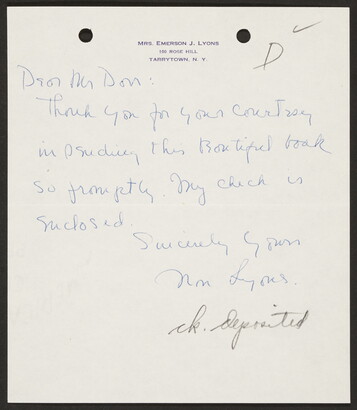 MRS. EMERSON J. LYONS
ROSE HILL
TARRYTOWN, N. Y.
D ✓
Dear Mr Dorr:
Thank you for your courtesy
in sending this Beautiful book
so promptly. My check is
enclosed.
Sincerely Yours
Lyons.
ck. deposited